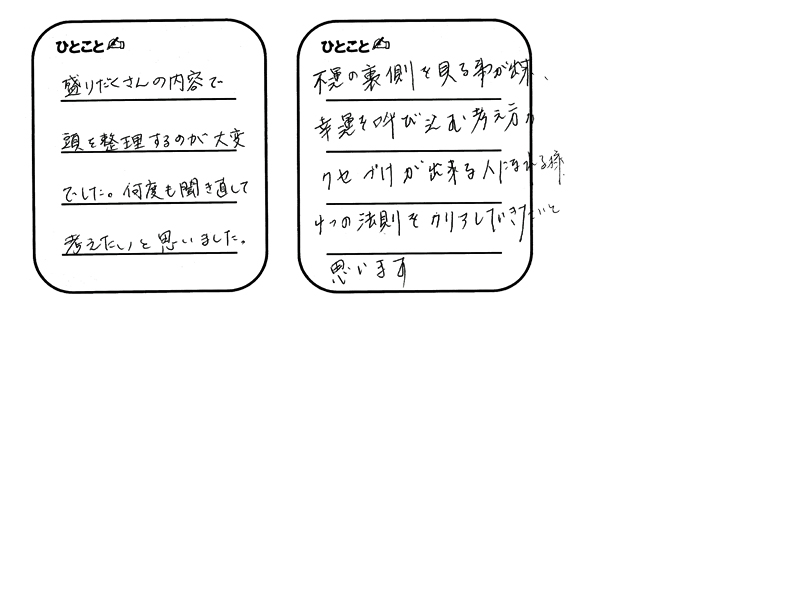 ひとこと✍
盛りだくさんの内容で
頭を整理するのが大変
でした。何度も聞き直して
考えたいと思いました。
ひとこと✍
不運の裏側を見る事が出来、
幸運を呼び込む考え方の
クセづけが出来る人になれる様
4つの法則をクリアしていきたいと
思います